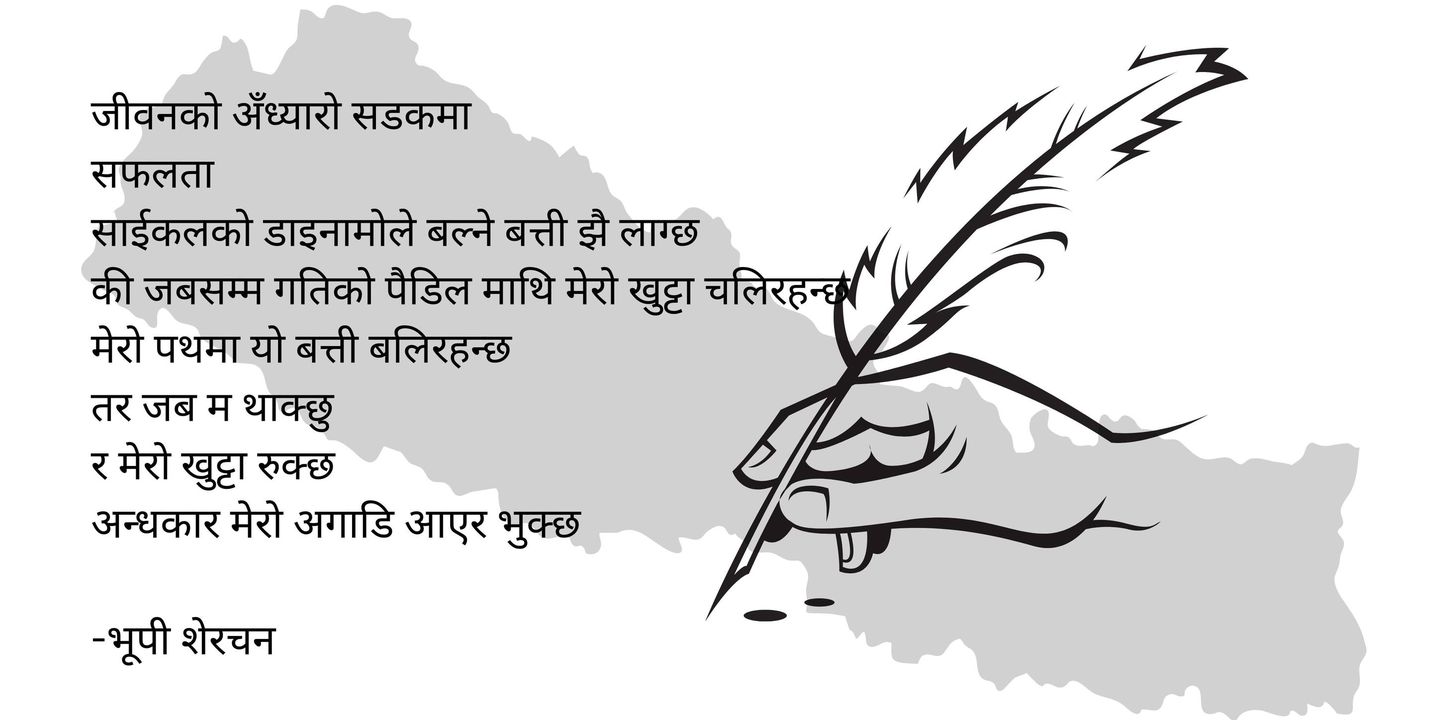 जीवनको अँध्यारो सडकमा
सफलता
साईकलको डाइनामोले बल्ने बत्ती झै लाग्छ
की जबसम्म गतिको पैडिल माथि मेरो खुट्टा चलिरहन्छ
मेरो पथमा यो बत्ती बलिरहन्छ
तर जब म थाक्छु
र मेरो खुट्टा रुक्छ
अन्धकार मेरो अगाडि आएर भुक्छ
-भूपी शेरचन